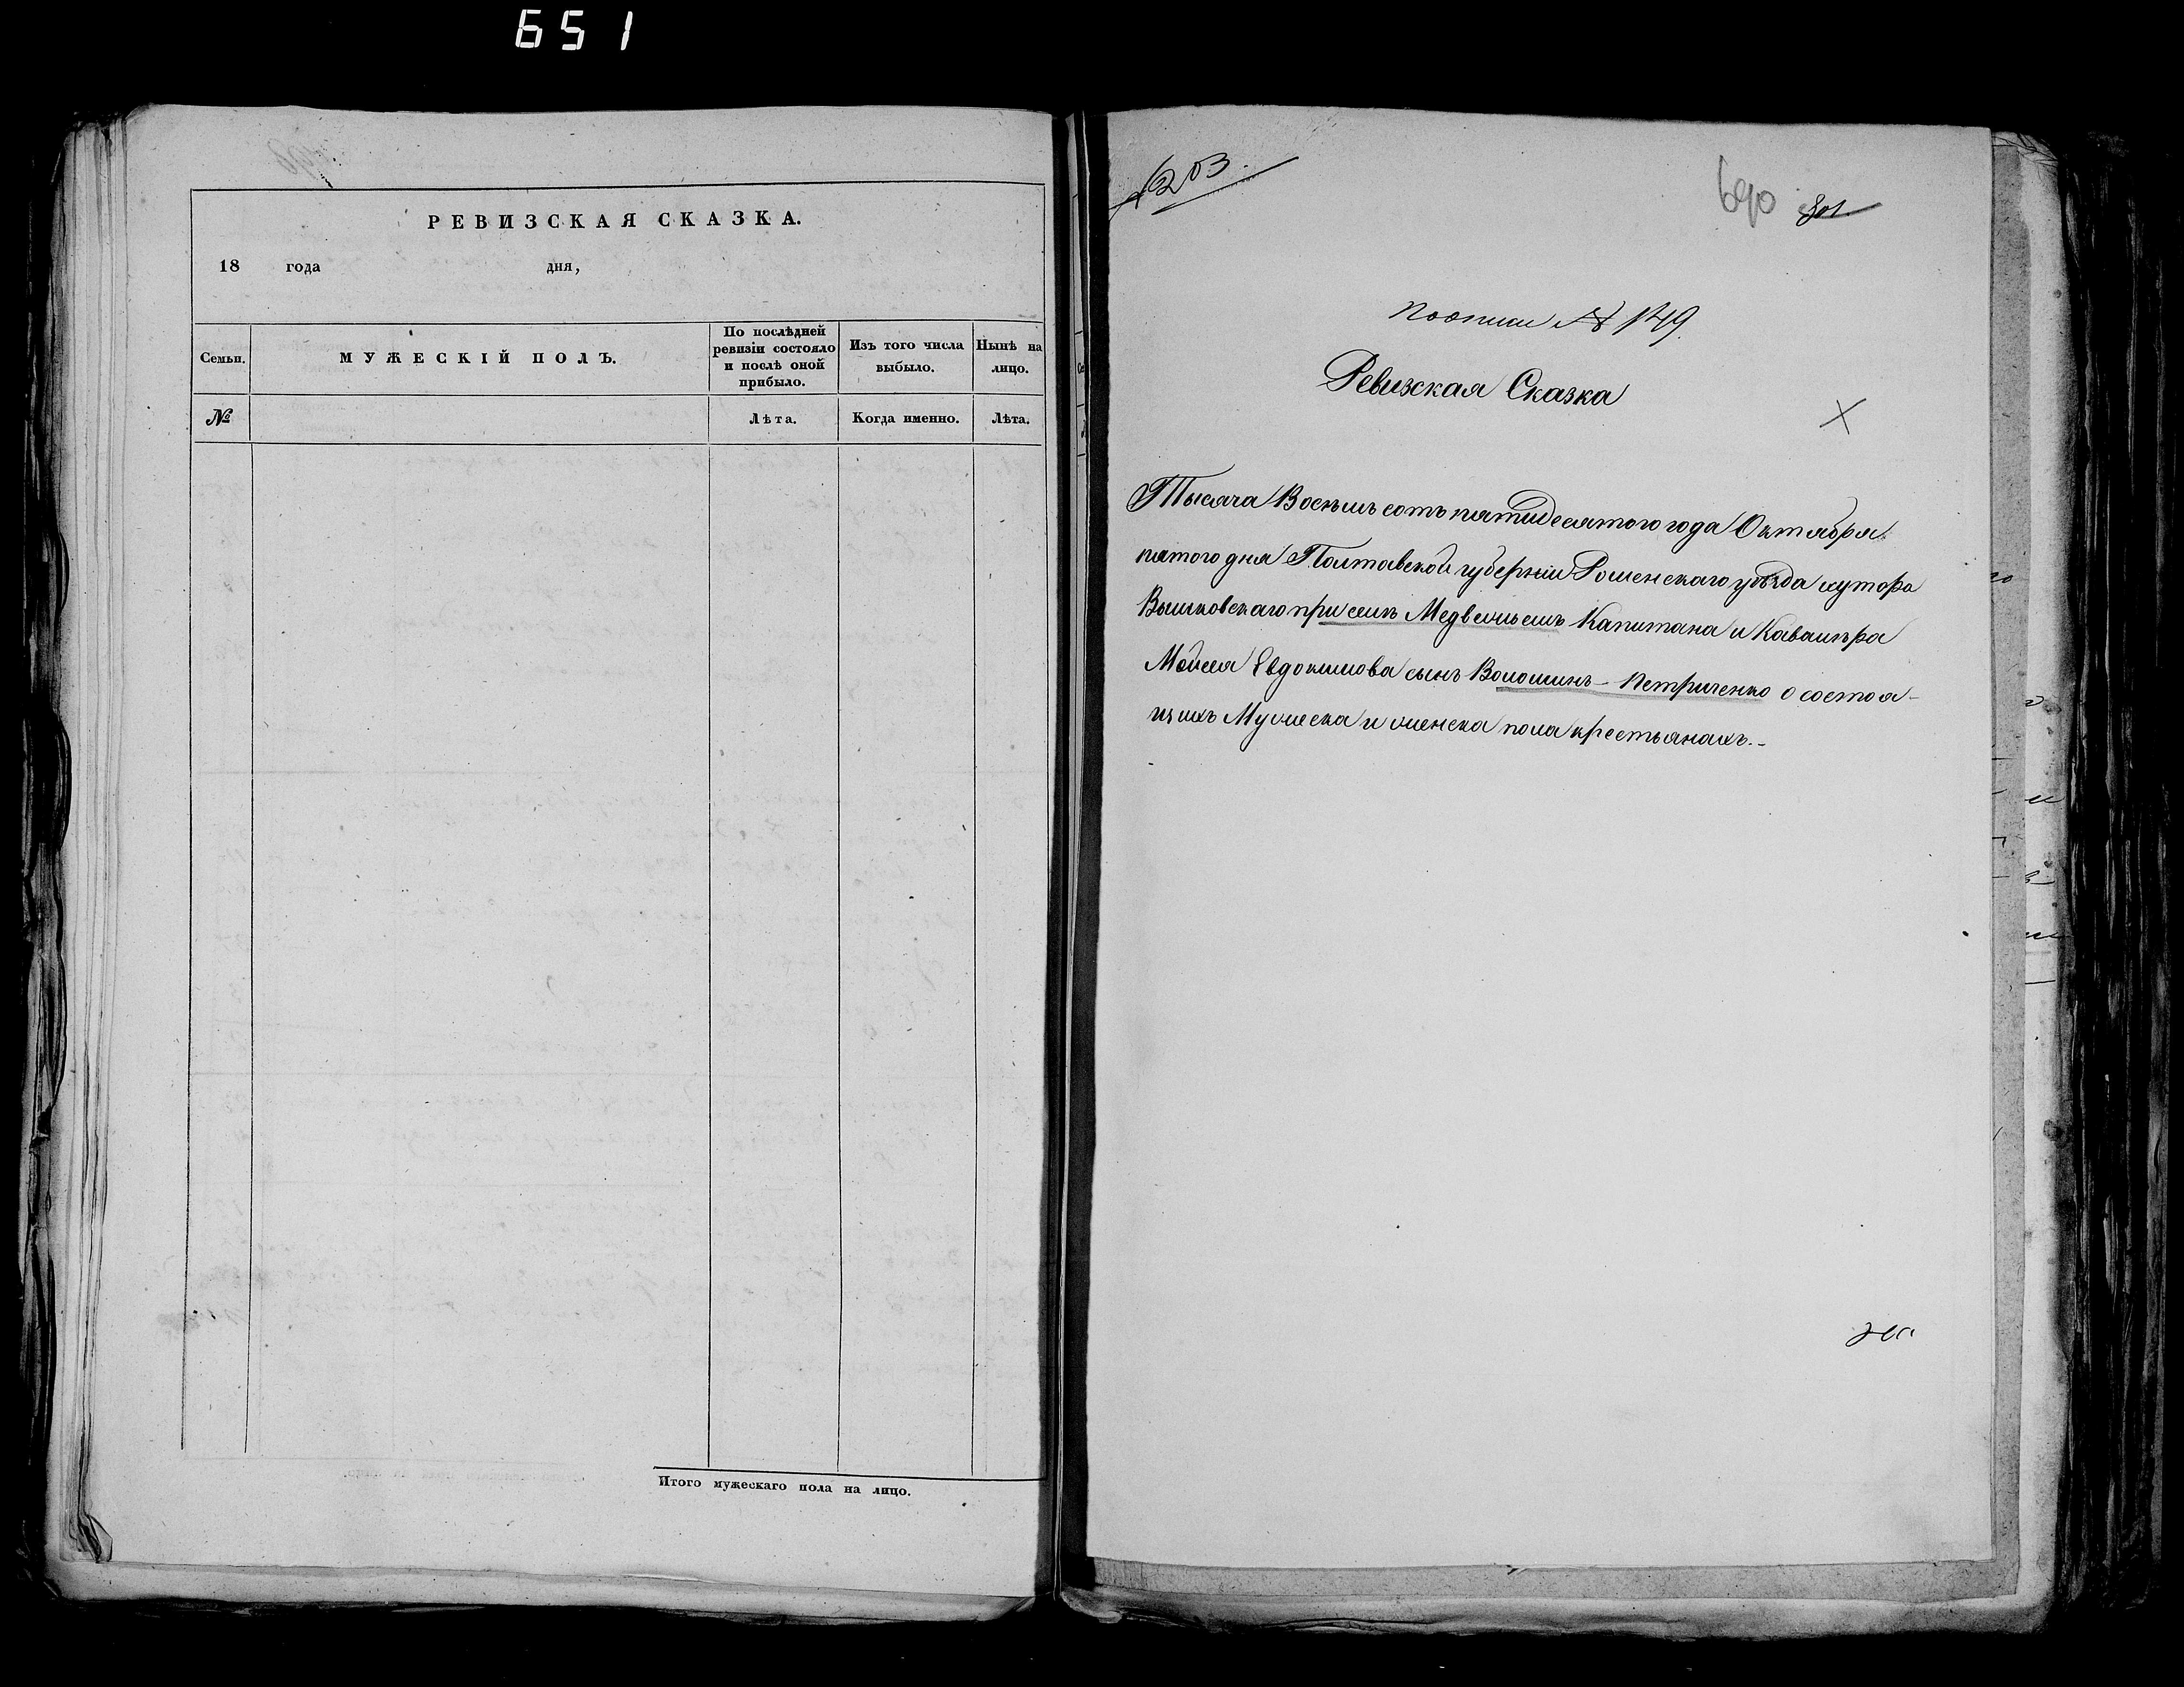 651
РЕВИЗСКАЯ СКАЗКА.
18 года дня,
Семьи.
МУЖЕСКІЙ ПОЛЪ.
По послѣдней ревизіи состояло и послѣ оной прибыло.
Изъ того числа выбыло.
Нынѣ на лицо.
№
Лѣта.
Когда именно.
Лѣта.
Итого мужескаго пола на лицо.
1203.
690 801
Поописи № 149.
Ревизская Сказка
Тысяча Восемь сотъ пятидесятого года Октября
пятого дня Полтавской губерніи Роменскаго уѣзда хутора
при селѣ Медвежьемъ Капитана и Кавалѣра
Мойсея Евдокимова сынъ Волошинъ - Петриченко о состоя-
щихъ Мужеска и женска пола крестьянахъ.-